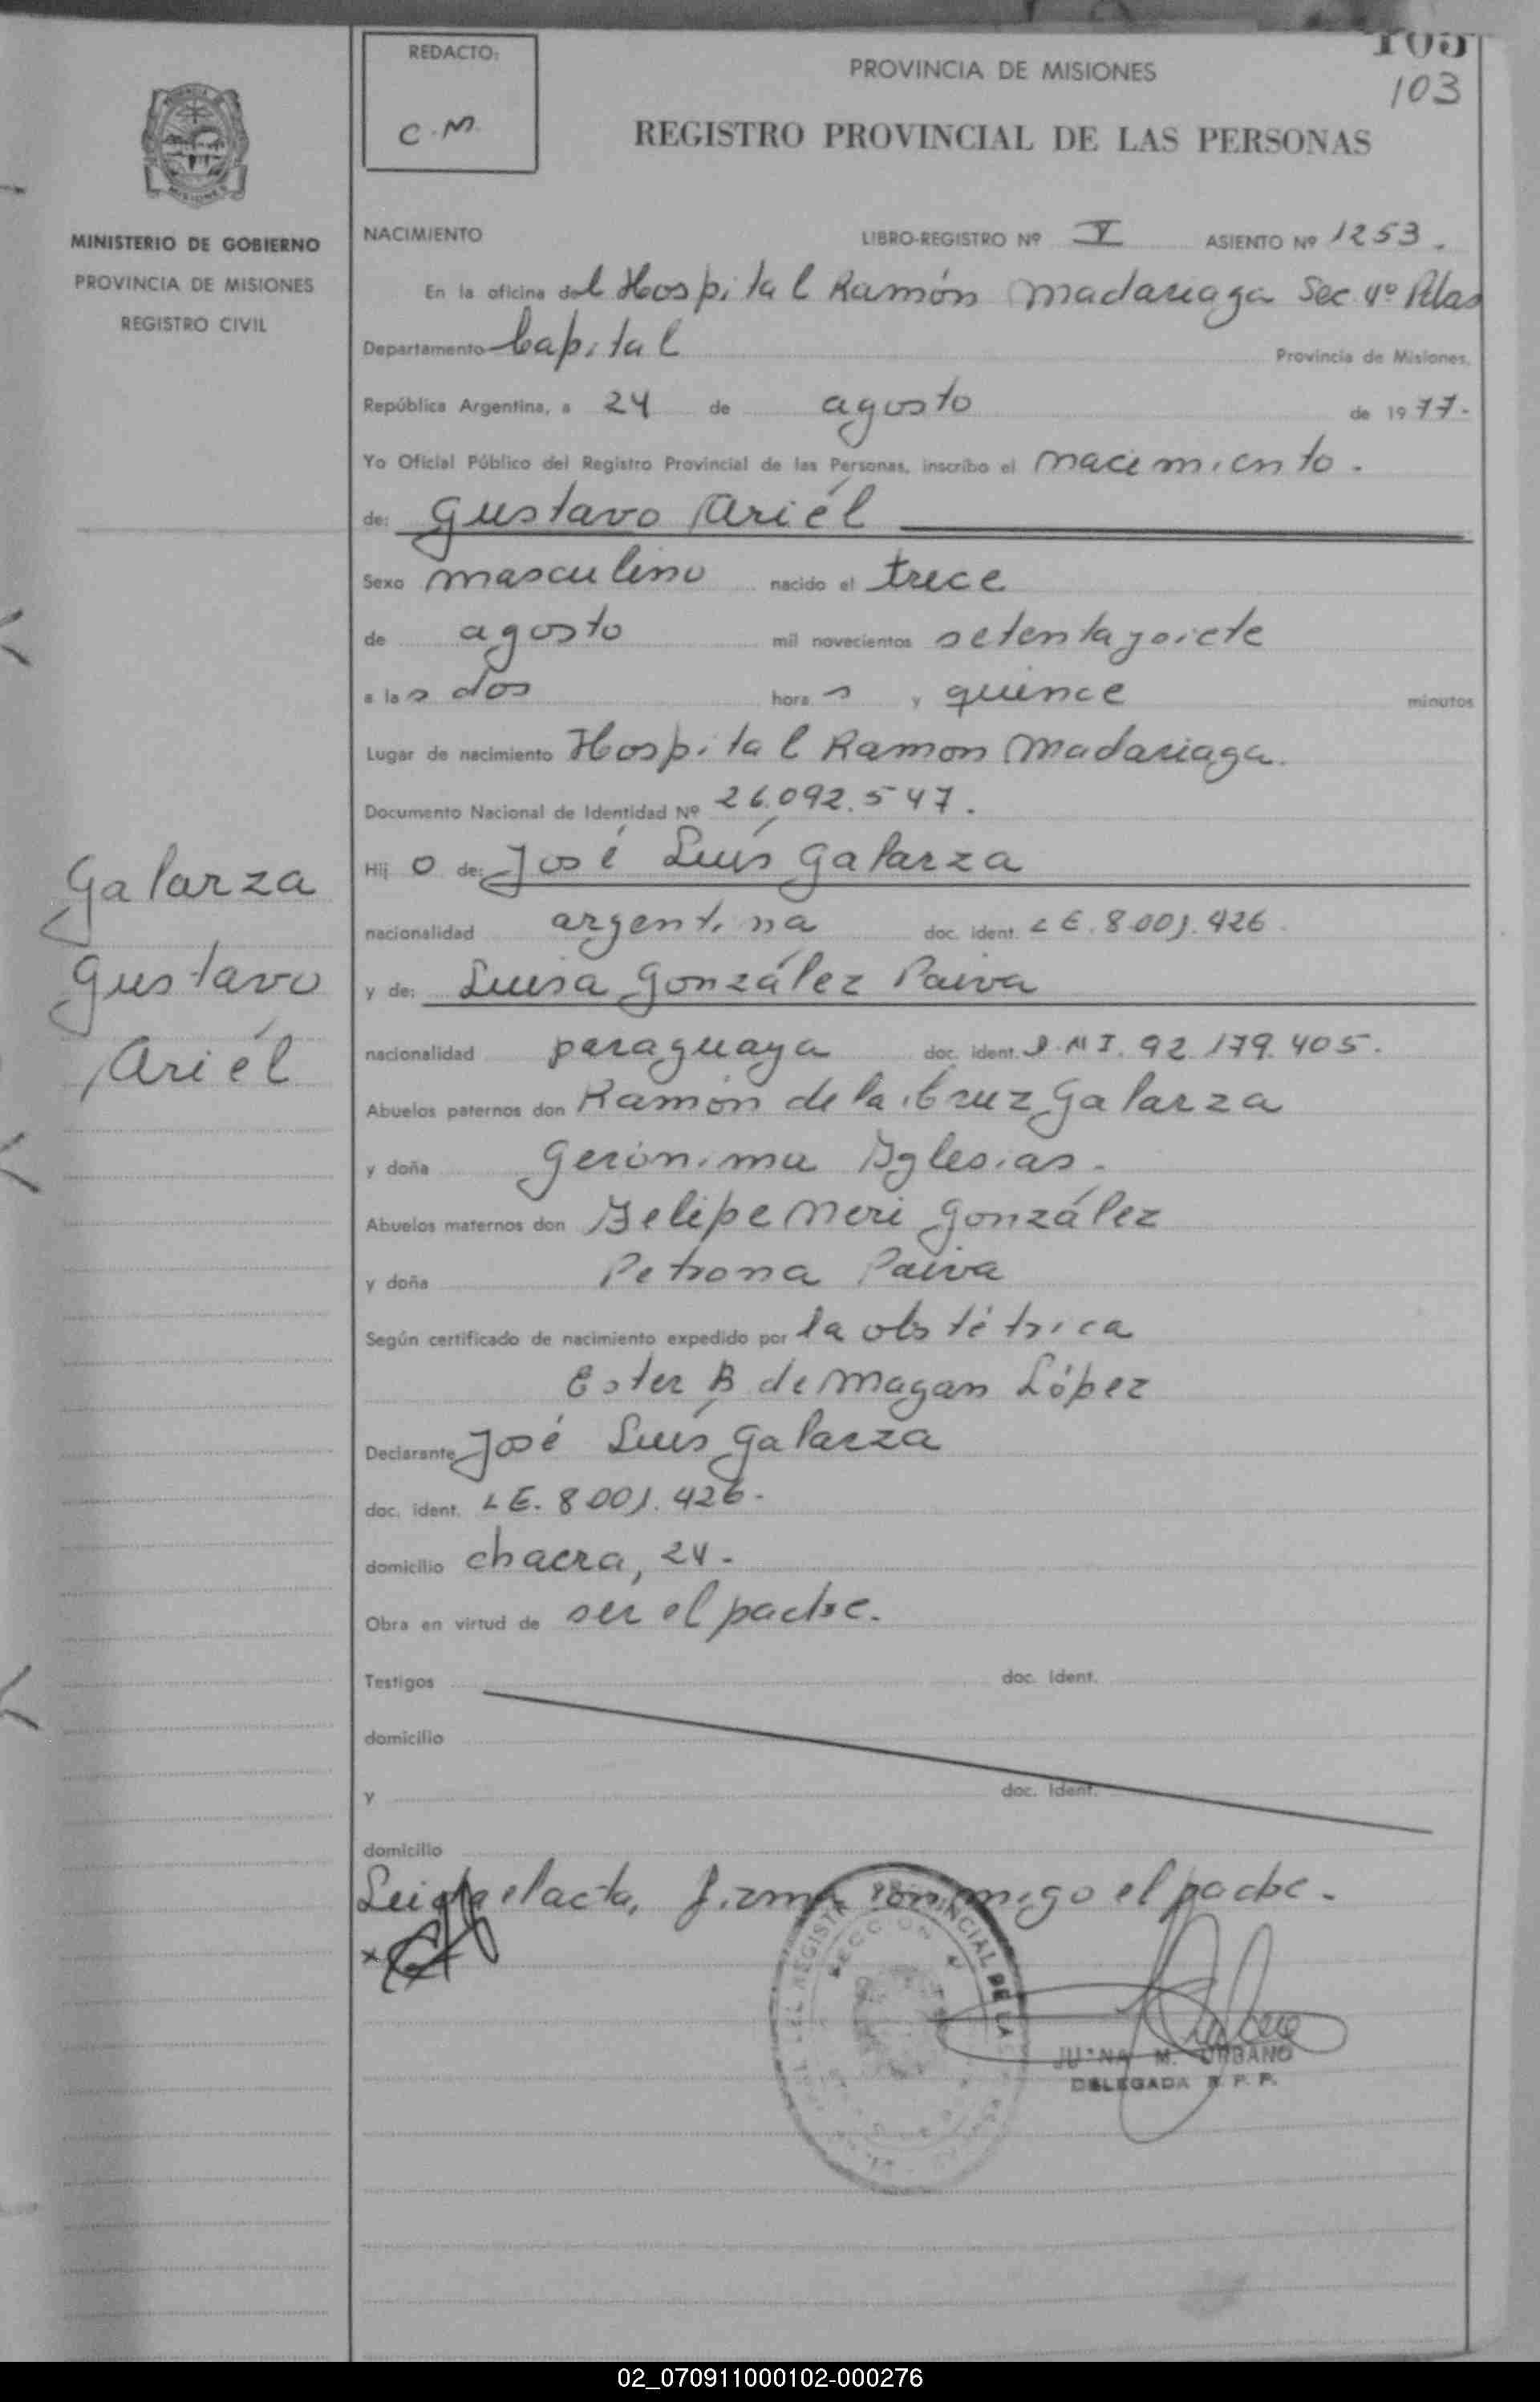 REDACTO:
C.M.
PROVINCIA DE MISIONES
105
103
REGISTRO PROVINCIAL DE LAS PERSONAS
MINISTERIO DE GOBIERNO
PROVINCIA DE MISIONES
REGISTRO CIVIL
NACIMIENTO LIBRO-REGISTRO Nº V ASIENTO Nº 1253.
En la oficina del Hospital Ramón Madariaga Sec. 4º Pdas
Departamento Capital Provincia de Misiones.
República Argentina, a 24 de agosto de 1977.-
Yo Oficial Público del Registro Provincial de las Personas, inscribo el nacimiento.
de: Gustavo Ariel
Sexo masculino nacido el trece
de agosto mil novecientos setentaysiete
a las dos hora s y quince minutos
Lugar de nacimiento Hospital Ramon Madariaga.
Documento Nacional de Identidad Nº 26.092.547.
Hij o de: José Luís Galarza
nacionalidad argentina doc. ident. L E. 8.001.426.
y de: Luisa González Paiva
nacionalidad paraguaya doc. ident. D.N I. 92.179.405.
Abuelos paternos don Ramón de la Cruz Galarza
y doña Gerónima Yglesias.
Abuelos maternos don Felipe Neri González
y doña Petrona Paiva
Según certificado de nacimiento expedido por la obstétrica
Ester B. de Magan López
Declarante José Luís Galarza
doc. ident. L E. 8.001.426.
domicilio chacra, 24.
Obra en virtud de ser el padre.
Testigos doc. Ident.
domicilio
y doc. Ident.
domicilio
Leida el acta, firma conmigo el padre.
Galarza
Gustavo
Ariél
REGISTRO PROVINCIAL DE LAS
SECCION
JUANA M. URBANO
DELEGADA R. P. P.
02_070911000102-000276